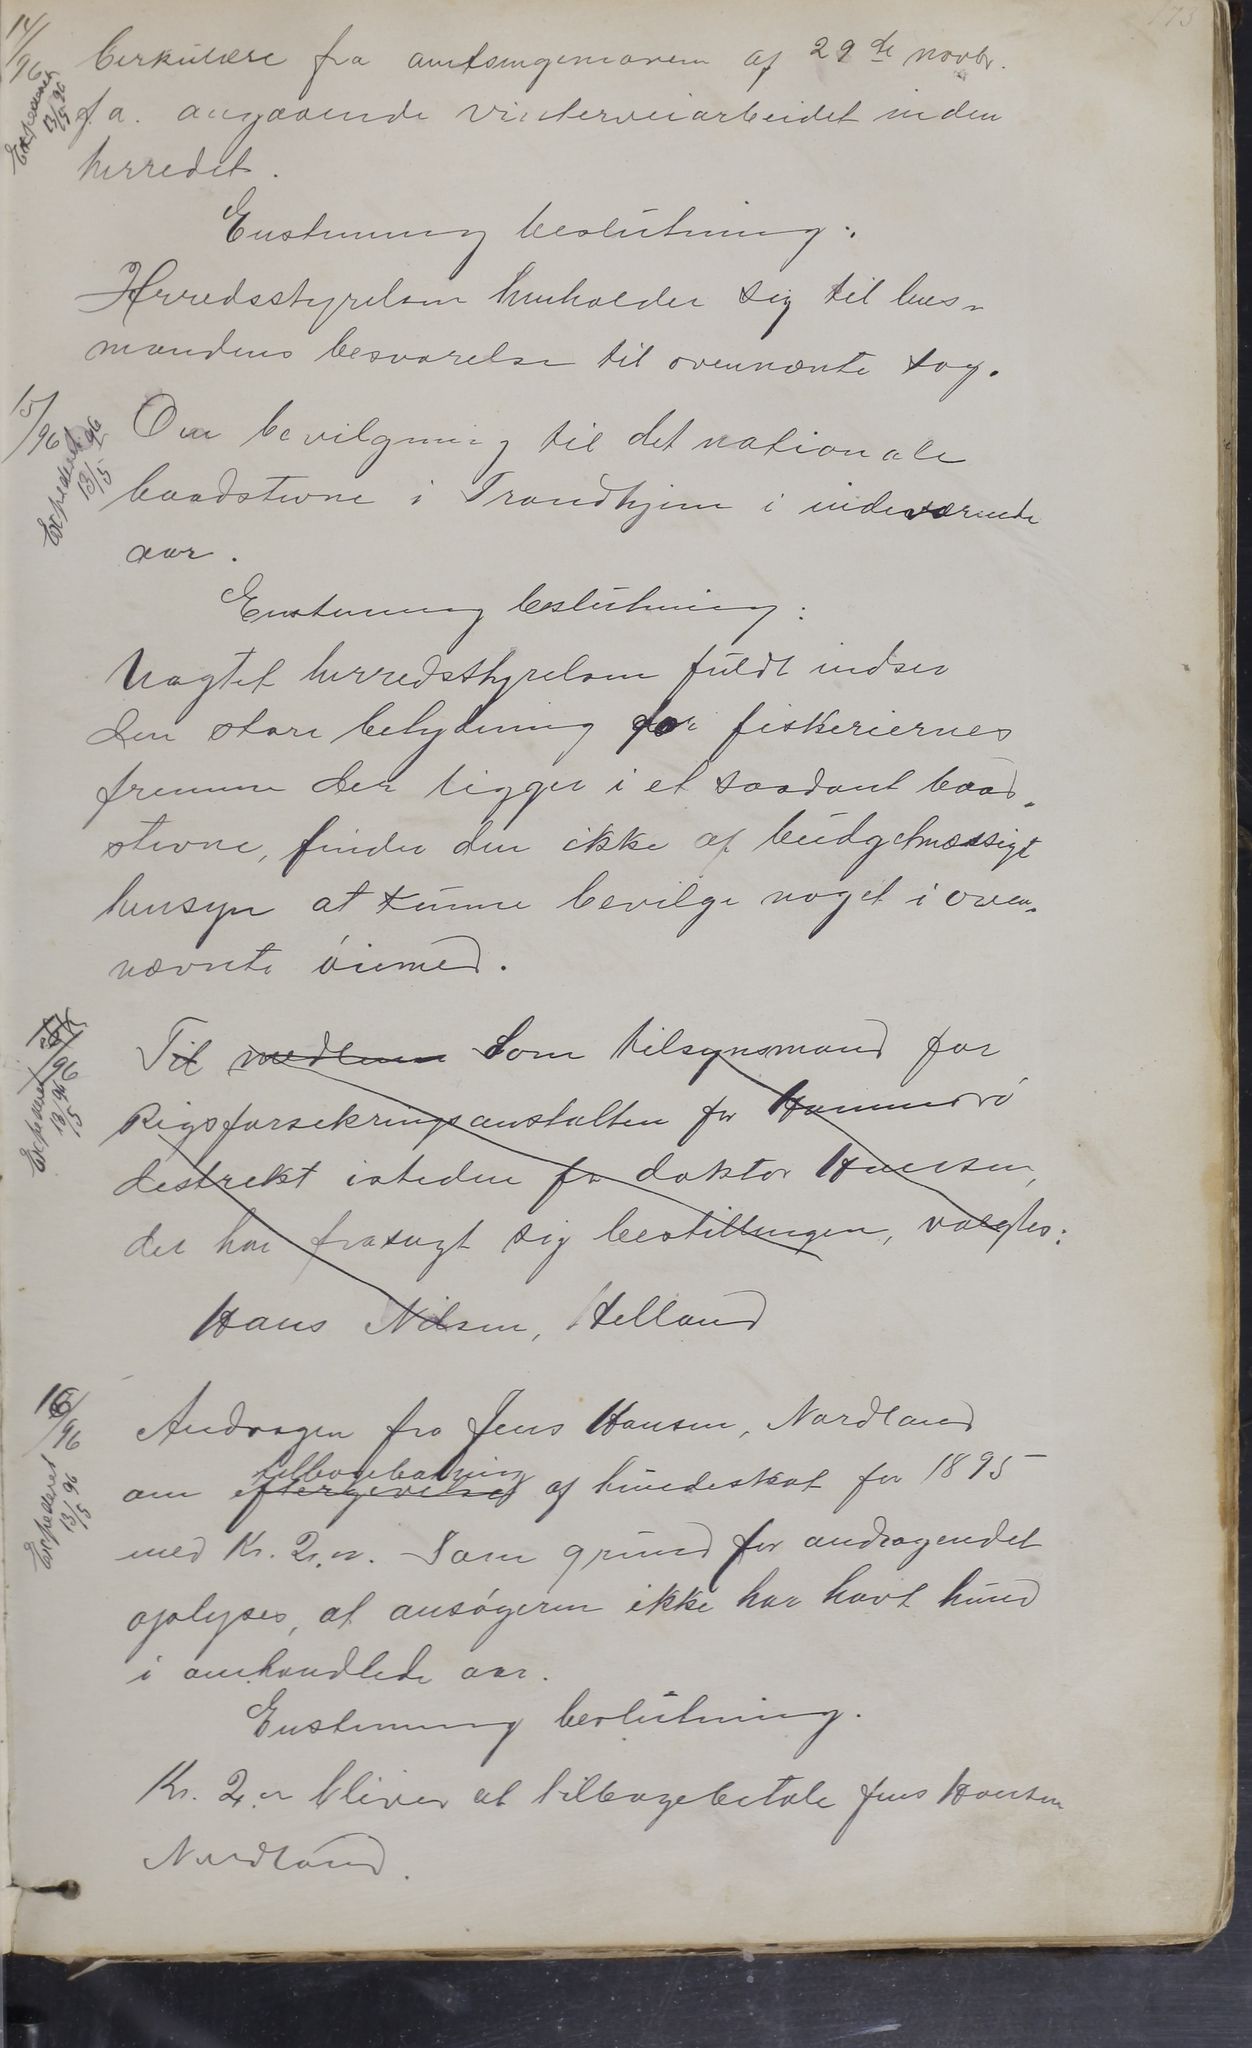 173
14/96
Expederet 13/5 96
Cirkulære fra amtsingeniøren af 29de novbr.
f. a. angaaende vinterveiarbeidet inden
herredet.
Enstemmig beslutning:
Herredsstyrelsen henholder sig til lens-
mandens besvarelse til ovennævnte sag.
15/96
Expederet 13/5 96
Om bevilgning til det nationale
baadstevne i Trondhjem i indeværende
aar.
Enstemmig beslutning:
Uagtet herredsstyrelsen fuldt indser
den store betydning for fiskeriernes
fremme der ligger i et saadant baad-
stevne, finder den ikke af budgetmæssigt
hensyn at kunne bevilge noget i oven-
nævnte øiemed.
/96
Expederet 13/5 96
Til medlem Som tilsynsmand for
Rigsforsekringsanstalten for Hammerø
destrekt isteden for doktor Hansen,
der har frasagt sig bestillingen, valgtes:
Hans Nilsen, Helland
16/96
Expederet 13/5 96
Andragen fra Jens Hansen, Nordland
tilbagebetaling
om eftergivelse af hundeskat for 1895
med Kr. 2,00. Som grund for andragendet
oplyses, at ansøgeren ikke har havt hund
i omhandlede aar.
Enstemmig beslutning.
Kr. 2,00 bliver at tilbagebetale Jens Hansen
Nordland.